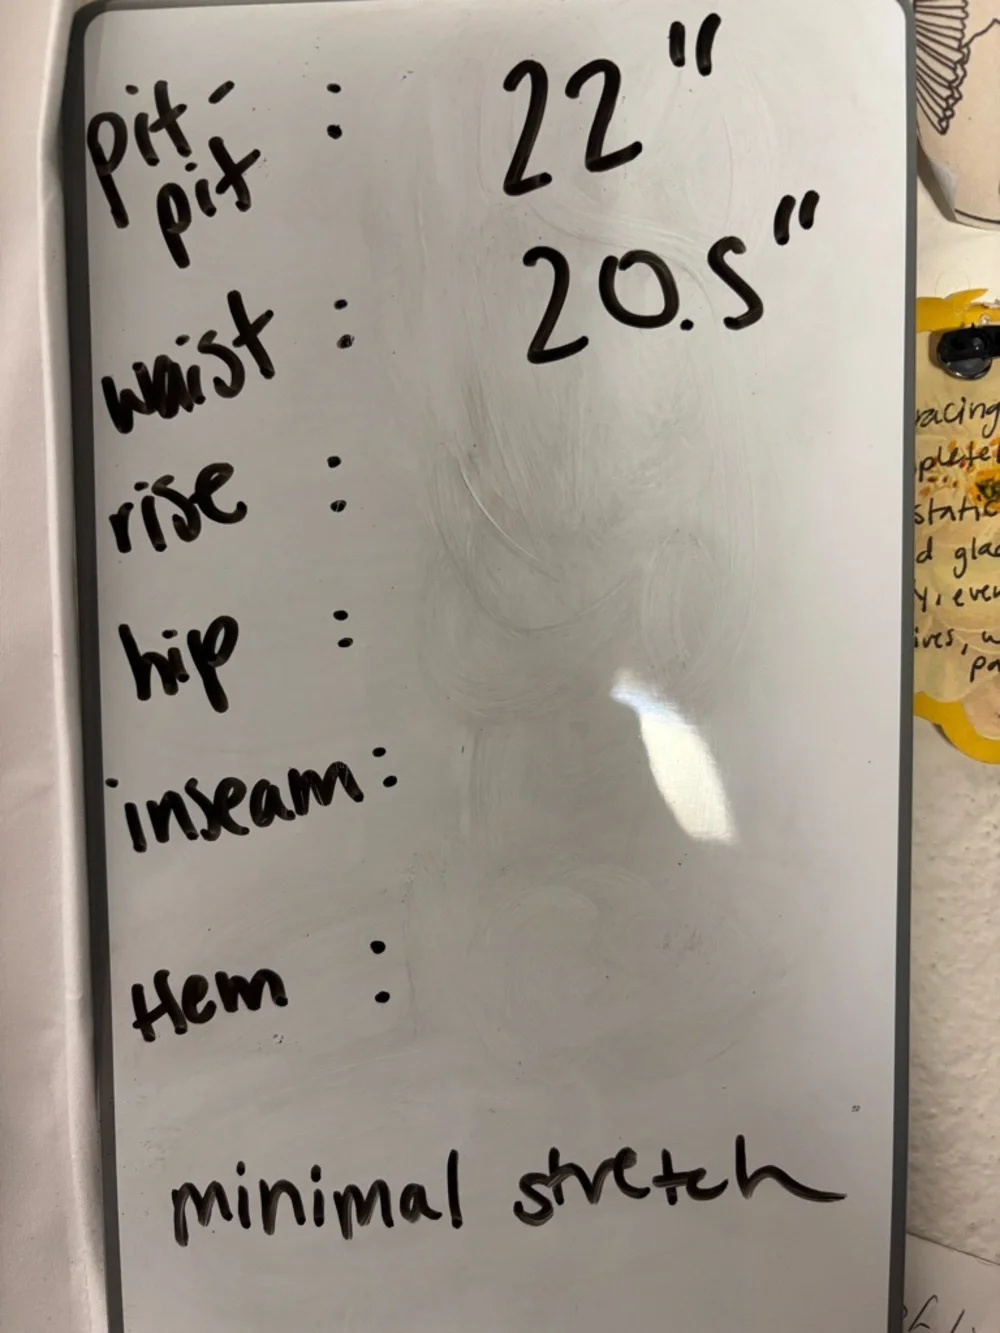 pit-pit : 22"
waist : 20.5"
rise :
hip :
inseam :
Hem :
minimal stretch
racing
static
d gla
y, even
ives, w